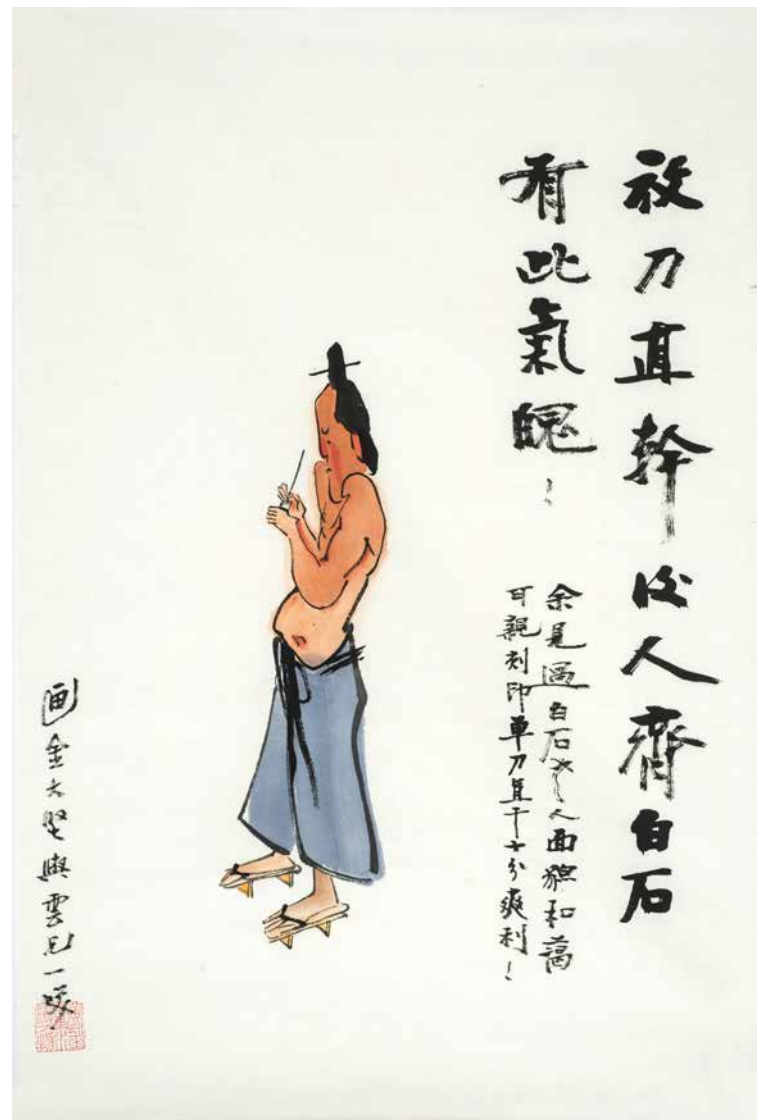 放刀直幹後人齊白石
有此氣魄！
余見過白石老人面貌和藹
可親刻印單刀直干十分爽利！
画金大堅與雲兄一笑